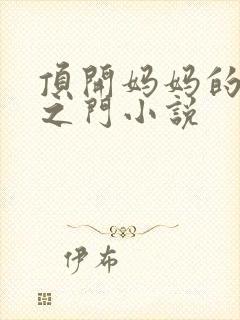 頂開妈妈的
之門小説
伊布